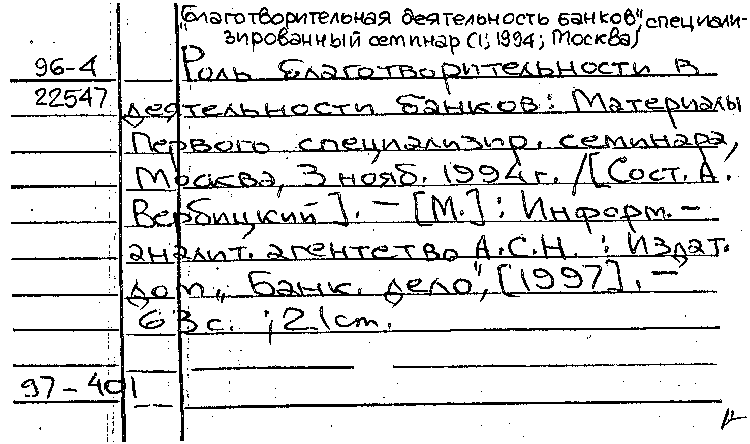 "Благотворительная деятельность банков", специали-
зированный семинар (1; 1994; Москва)
96-4 Роль благотворительности в
22547 деятельности банков: Материалы
Первого специализир. семинара,
Москва, 3 нояб. 1994 г. /[Сост. А.
Вербицкий]. - [М.] : Информ.-
аналит. агентство А.С.Н. : Издат.
дом „Банк. дело", [1997]. -
63 с. ; 21 cm.
97-401